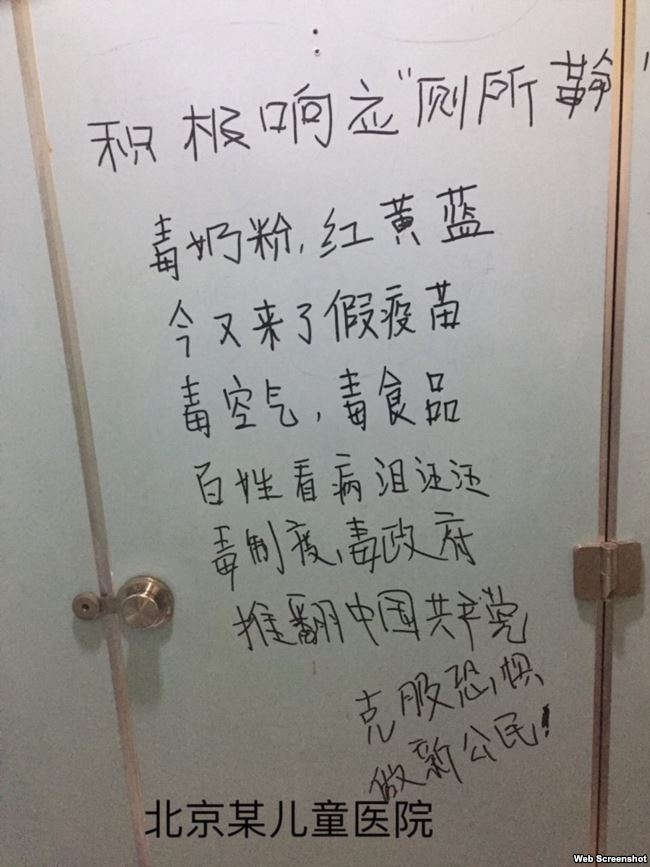 积极响应“厕所革命”
毒奶粉,红黄蓝
今又来了假疫苗
毒空气,毒食品
百姓看病泪汪汪
毒制度,毒政府
推翻中国共产党
克服恐惧
做新公民!
北京某儿童医院
Web Screenshot